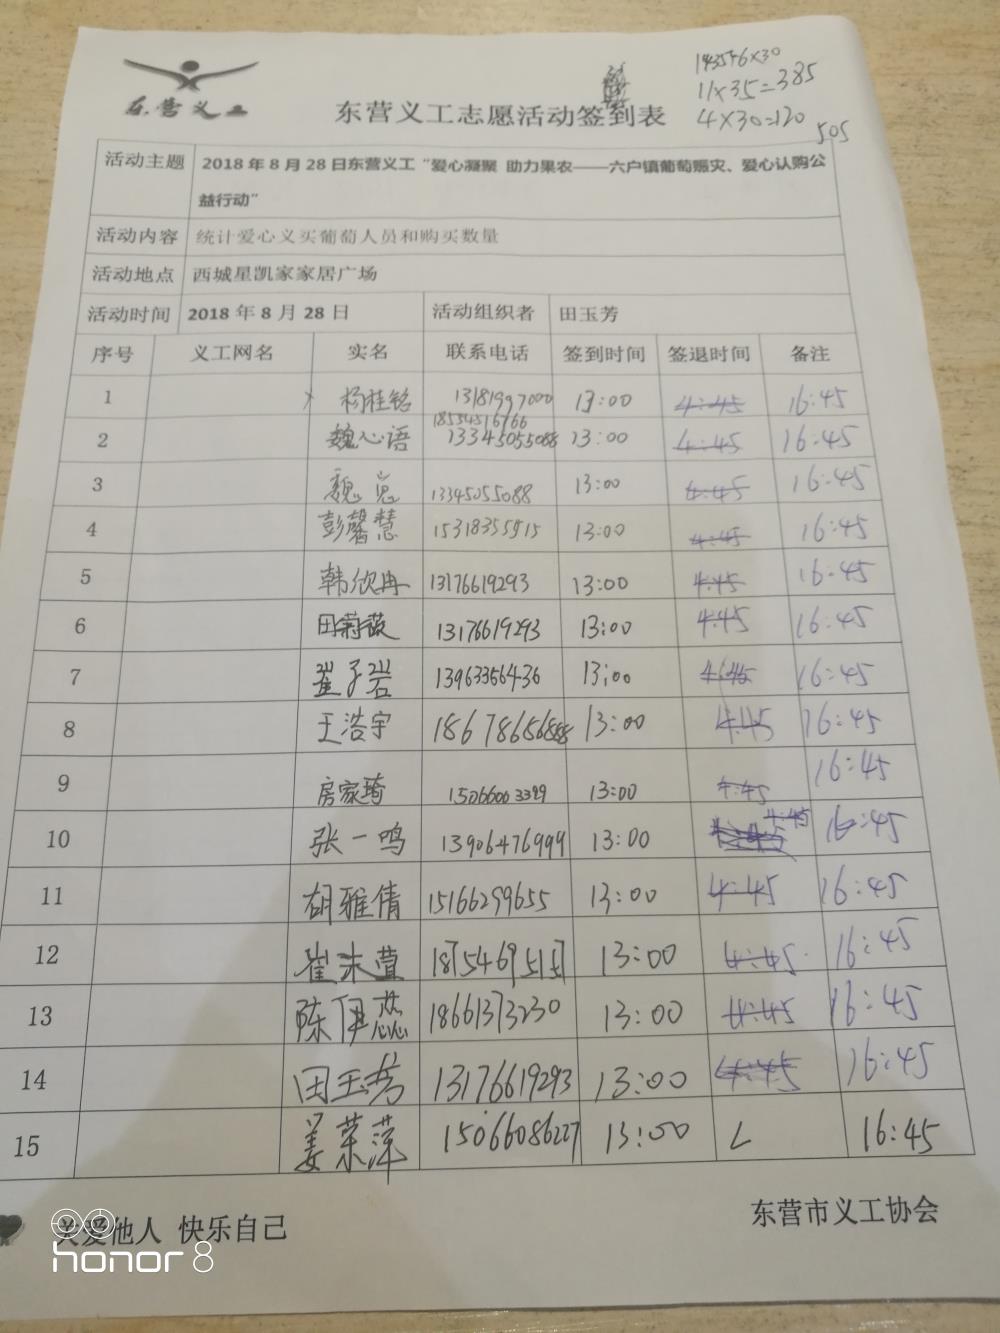 东营义工
东营义工志愿活动签到表
11×35=385
4×30=120
505
活动主题 2018年8月28日东营义工“爱心凝聚 助力果农——六户镇葡萄赈灾、爱心认购公
益行动”
活动内容 统计爱心义买葡萄人员和购买数量
活动地点 西城星凯家家居广场
活动时间 2018年8月28日 活动组织者 田玉芳
序号 义工网名 实名 联系电话 签到时间 签退时间 备注
1 杨桂铭 13181997000 13:00 4:45 16:45
18554516766
2 魏心语 13345055088 13:00 4:45 16:45
3 魏 13345055088 13:00 4:45 16:45
4 彭馨慧 15318355915 13:00 4:45 16:45
5 韩欣冉 13176619293 13:00 4:45 16:45
6 田蔚薇 13176619293 13:00 4:45 16:45
7 崔子岩 13963356436 13:00 4:45 16:45
8 王浩宇 18678656888 13:00 4:45 16:45
9 房家琦 15066003399 13:00 4:45 16:45
10 张一鸣 13906476999 13:00 4:45 16:45
11 胡雅倩 15166299655 13:00 4:45 16:45
12 崔未萱 18754695151 13:00 4:45 16:45
13 陈伊蕊 18661373230 13:00 4:45 16:45
14 田玉芳 13176619293 13:00 4:45 16:45
15 姜荣萍 15066086227 13:00 16:45
关爱他人 快乐自己 东营市义工协会
honor 8